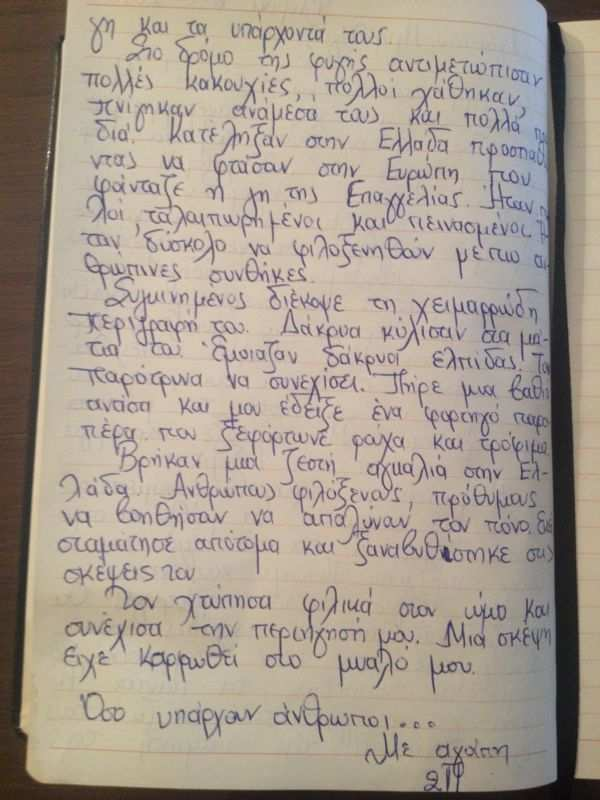 γη και τα υπάρχοντά τους.
Στο δρόμο της φυγής αντιμετώπισαν
πολλές κακουχίες, πολλοί χάθηκαν,
πνίγηκαν ανάμεσα τους και πολλά παι
διά. Κατέληξαν στην Ελλάδα προσπαθώ
ντας να φτάσαν στην Ευρώπη που
φάνταζε η γη της Επαγγελίας. Ήταν
λοί, ταλαιπωρημένοι και πεινασμένοι. Ή
ταν δύσκολο να φιλοξενηθούν με πιο αν
θρώπινες συνθήκες.
Συγκινημένος διέκοψε τη χειμαρρώδη
περιγραφή του. Δάκρυα κύλισαν στα μά-
τια του. Έμοιαζαν δάκρυα ελπίδας. Τον
παρότρυνα να συνεχίσει. Πήρε μια βαθιά
ανάσα και μου έδειξε ένα φορτηγό παρα
πέρα που ξεφόρτωνε ρούχα και τρόφιμα.
Βρήκαν μια ζεστή αγκαλιά στην Ελ-
λάδα. Ανθρώπους φιλόξενους, πρόθυμους
να βοηθήσαν να απαλύναν τον πόνο.
σταμάτησε απότομα και ξαναβυθίστηκε στις
σκέψεις του
Τον χτύπησα φιλικά στον ώμο και
συνέχισα την περιήγησή μου. Μια σκέψη
είχε καρφωθεί στο μυαλό μου.
Όσο υπάρχουν άνθρωποι...
Με αγάπη